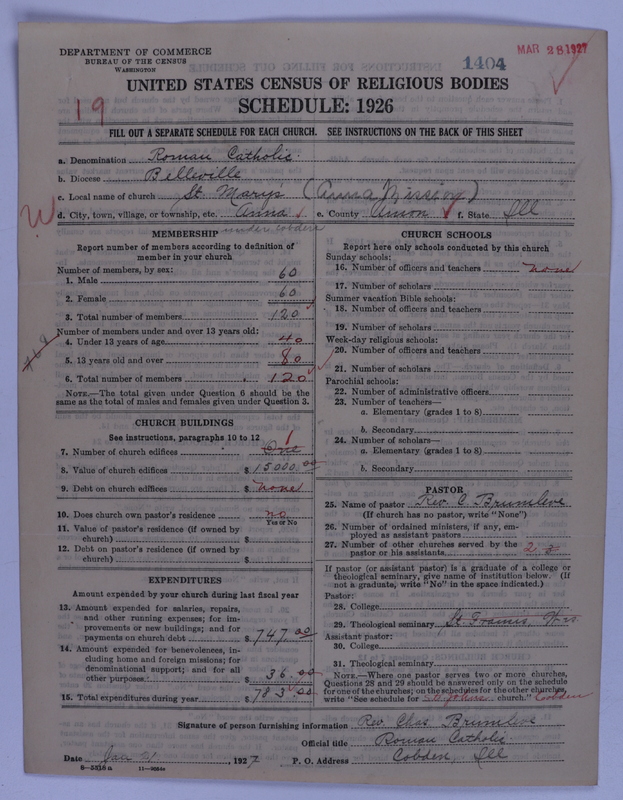 DEPARTMENT OF COMMERCE
BUREAU OF THE CENSUS
WASHINGTON
1404
MAR 28 1927
UNITED STATES CENSUS OF RELIGIOUS BODIES
SCHEDULE: 1926
19
FILL OUT A SEPARATE SCHEDULE FOR EACH CHURCH. SEE INSTRUCTIONS ON THE BACK OF THIS SHEET
a. Denomination Roman Catholic
b. Diocese Belleville
c. Local name of church St. Mary's (Anna Mission)
d. City, town, village, or township, etc. Anna e. County Union f. State Ill
under Cobden
MEMBERSHIP
Report number of members according to definition of
member in your church
Number of members, by sex:
1. Male 60
2. Female 60
3. Total number of members 120
Number of members under and over 13 years old:
4. Under 13 years of age 40
5. 13 years old and over 80
6. Total number of members 120
NOTE.—The total given under Question 6 should be the
same as the total of males and females given under Question 3.
CHURCH BUILDINGS
See instructions, paragraphs 10 to 12
7. Number of church edifices One 1
8. Value of church edifices $ 15000.00
9. Debt on church edifices $ none
10. Does church own pastor's residence no
Yes or No
11. Value of pastor's residence (if owned by
church) $
12. Debt on pastor's residence (if owned by
church) $
EXPENDITURES
Amount expended by your church during last fiscal year
13. Amount expended for salaries, repairs,
and other running expenses; for im-
provements or new buildings; and for
payments on church debt $ 747.00
14. Amount expended for benevolences, in-
cluding home and foreign missions; for
denominational support; and for all
other purposes $ 36.00
15. Total expenditures during year $ 783.00
CHURCH SCHOOLS
Report here only schools conducted by this church
Sunday schools:
16. Number of officers and teachers none
17. Number of scholars
Summer vacation Bible schools:
18. Number of officers and teachers
19. Number of scholars
Week-day religious schools:
20. Number of officers and teachers
21. Number of scholars
Parochial schools:
22. Number of administrative officers
23. Number of teachers—
a. Elementary (grades 1 to 8)
b. Secondary
24. Number of scholars—
a. Elementary (grades 1 to 8)
b. Secondary
PASTOR
25. Name of pastor Rev. C. Brumleve
(If church has no pastor, write "None")
26. Number of ordained ministers, if any, em-
ployed as assistant pastors
27. Number of other churches served by the
pastor or his assistants 2
If pastor (or assistant pastor) is a graduate of a college or
theological seminary, give name of institution below. (If
not a graduate, write "No" in the space indicated.)
Pastor:
28. College
29. Theological seminary St. Francis, Wis.
Assistant pastor:
30. College
31. Theological seminary
NOTE.—Where one pastor serves two or more churches,
Questions 28 and 29 should be answered only on the schedule
for one of the churches; on the schedules for the other churches,
write "See schedule for church." Cobden
Signature of person furnishing information Rev. Chas. Brumleve
Official title Roman Catholic
Date Jan , 1927 P. O. Address Cobden, Ill